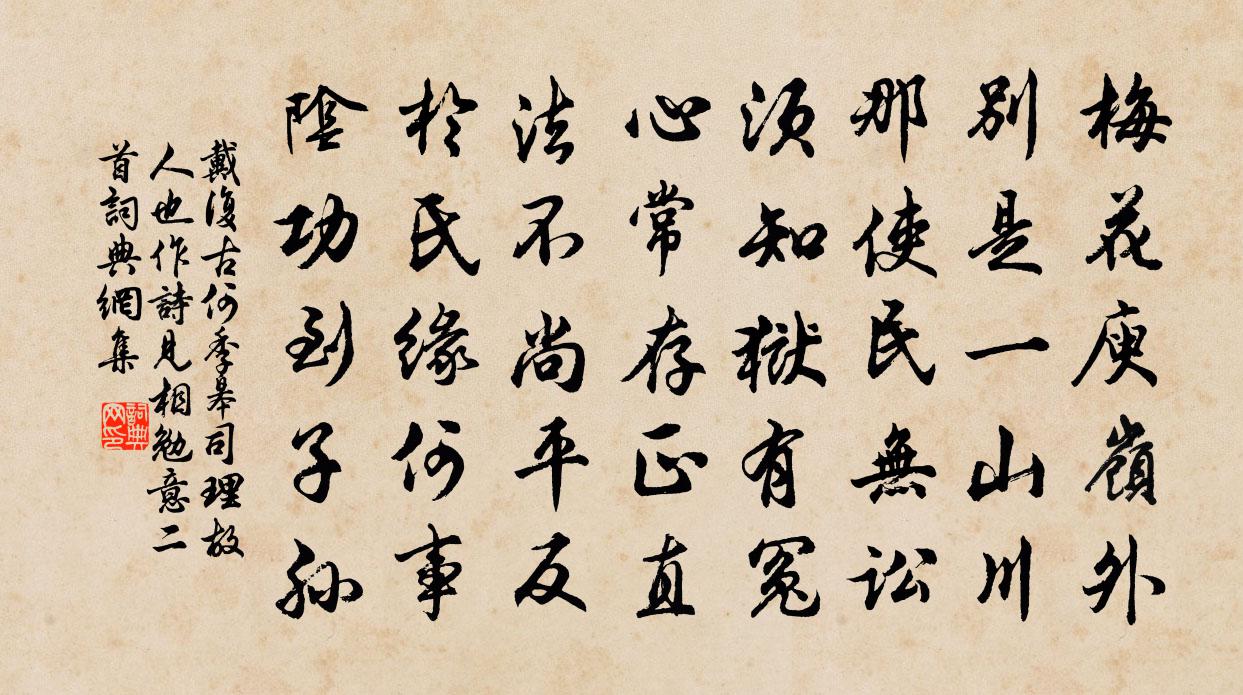 梅花庾嶺外
別是一山川
那使民無訟
須知獄有冤
心常存正直
法不尚平反
於民緣何事
陰功到子孫
戴復古何季皋司理故
人也作詩見相勉意二
首詞典網集
詞典
网印